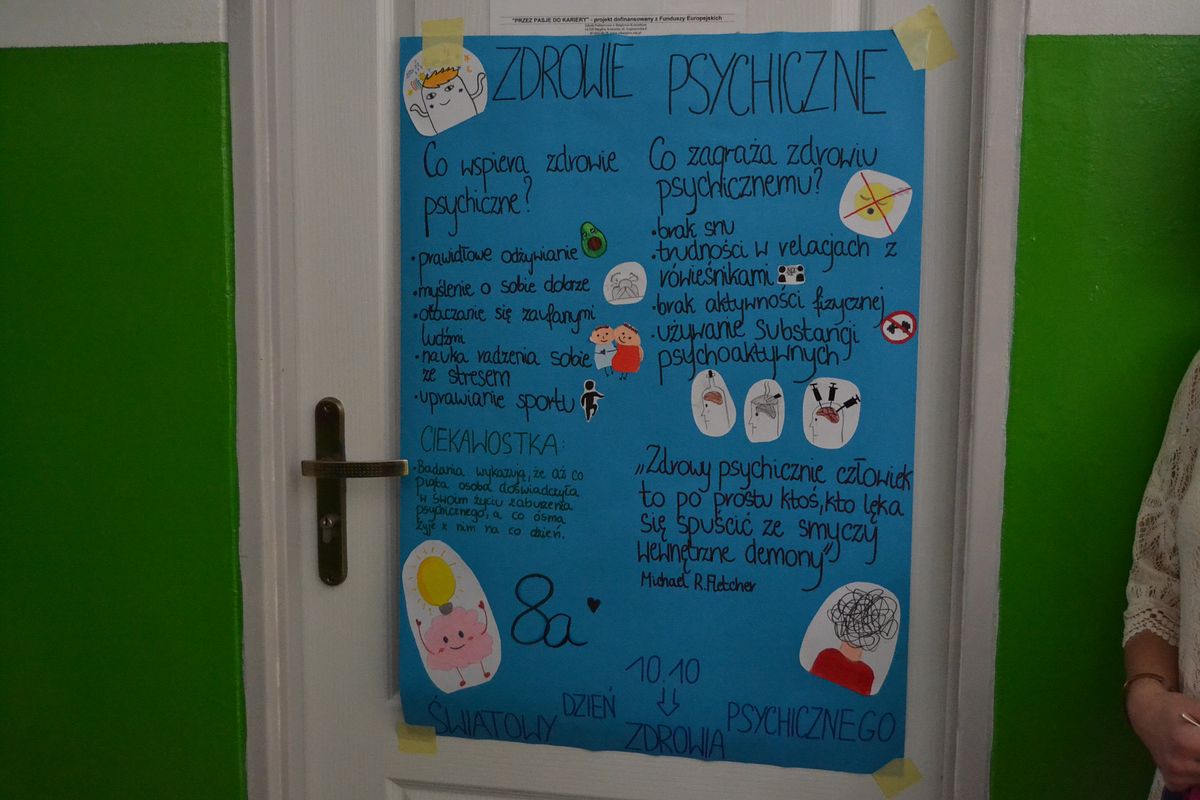 "PRZEZ PASJE DO KARIERY" - projekt dofinansowany z Funduszy Europejskich
ZDROWIE PSYCHICZNE
Co wspiera zdrowie
psychiczne?
•prawidłowe odżywianie
•myślenie o sobie dobrze
•otaczanie się zaufanymi
ludźmi
•nauka radzenia sobie
ze stresem
•uprawianie sportu
CIEKAWOSTKA:
•Badania wykazują, że aż co
piąta osoba doświadczyła
w swoim życiu zaburzenia
psychicznego, a co ósma
żyje z nim na co dzień.
8a
Co zagraża zdrowiu
psychicznemu?
•brak snu
•trudności w relacjach z
rówieśnikami
•brak aktywności fizycznej
•używanie substancji
psychoaktywnych
„Zdrowy psychicznie człowiek
to po prostu ktoś, kto lęka
się spuścić ze smyczy
wewnętrzne demony”
Michael R. Fletcher
10.10
ŚWIATOWY DZIEŃ ZDROWIA PSYCHICZNEGO